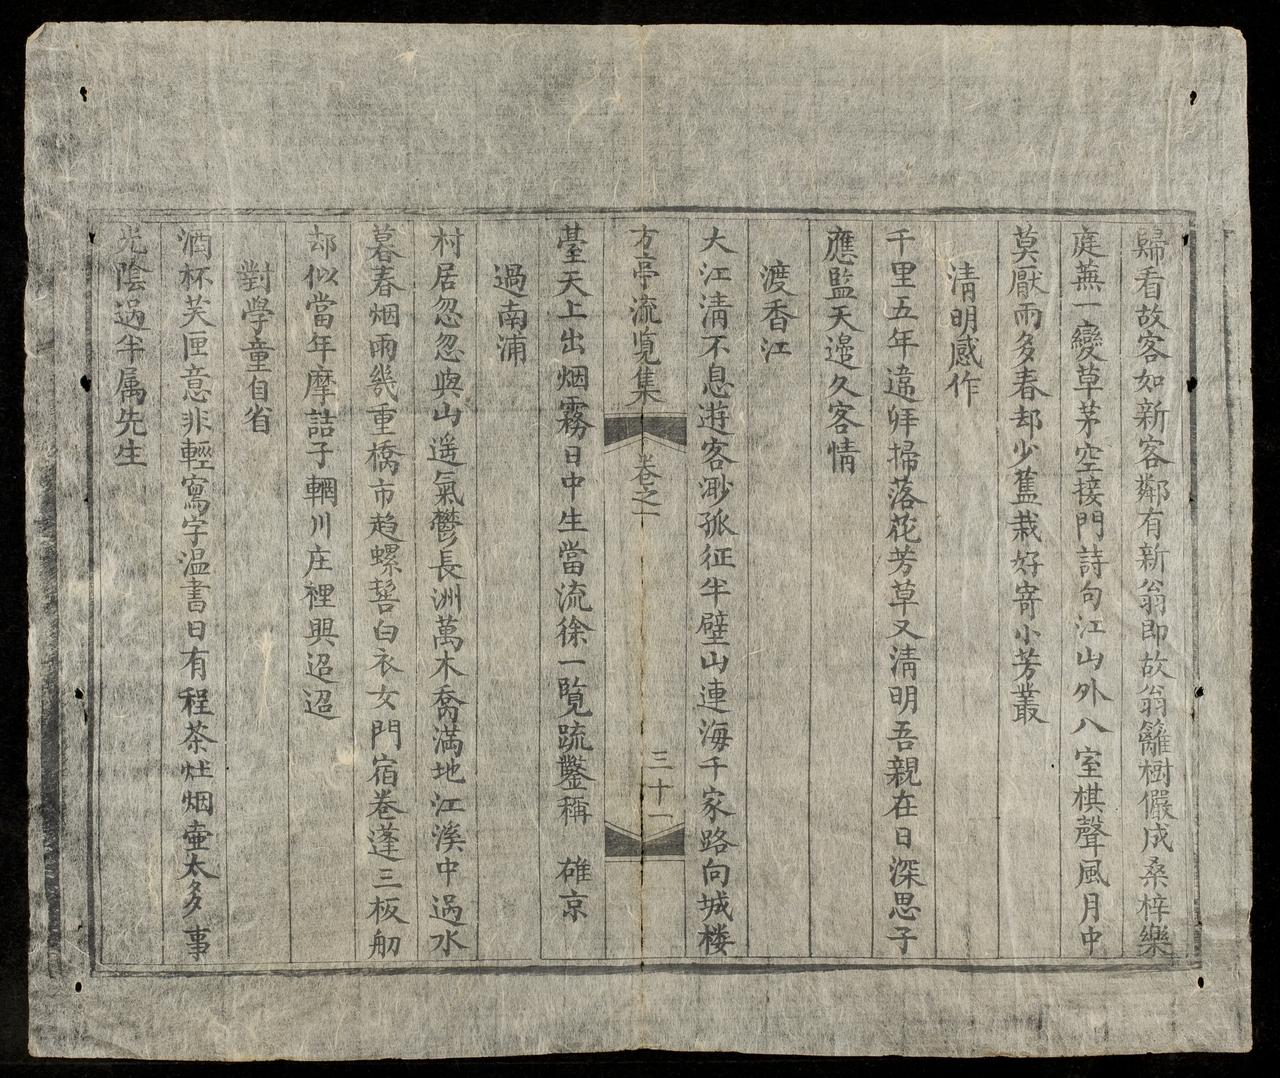 歸看故客如新客鄰有新翁即故翁籬樹儼成桑梓樂
庭蕪一變草茅空接門詩句江山外八室棋聲風月中
莫厭雨多春却少舊栽好寄小芳叢
淸明感作
千里五年違拜掃落花芳草又淸明吾親在日深思子
應監天邊久客情
渡香江
大江淸不息遊客渺孤征半壁山連海千家路向城楼
方亭流覧集
卷之一
三十一
臺天上出烟霧日中生當流徐一覧疏鑿稱 碓京
過南浦
村居忽忽與山遥氣鬱長洲萬木喬滿地江溪中過水
暮春烟雨幾重橋市趋螺髻白衣女門宿卷蓬三板舠
却似當年摩詰子輞川庄裡興迢迢
對學童自省
酒杯芙匣意非輕寫字温書日有程茶灶烟壷太多事
光陰過半属先生